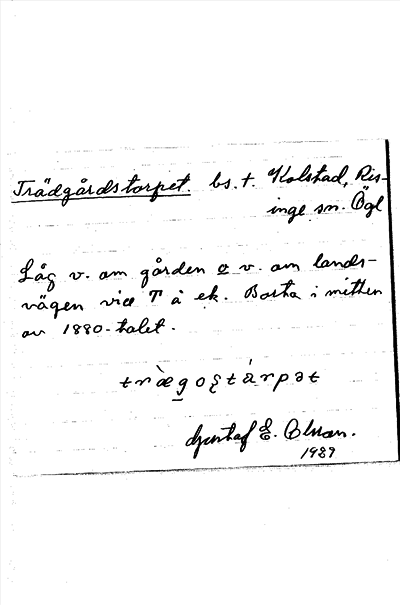 Trädgårdstorpet. bs. t. Kolstad, Ris-
inge sn. Ögl
Låg v. om gården o v. om lands-
vägen vid T å ek. Borta i mitten
av 1880-talet.
træ̀goʂtárpət
Gustaf E. Olsson.
1929